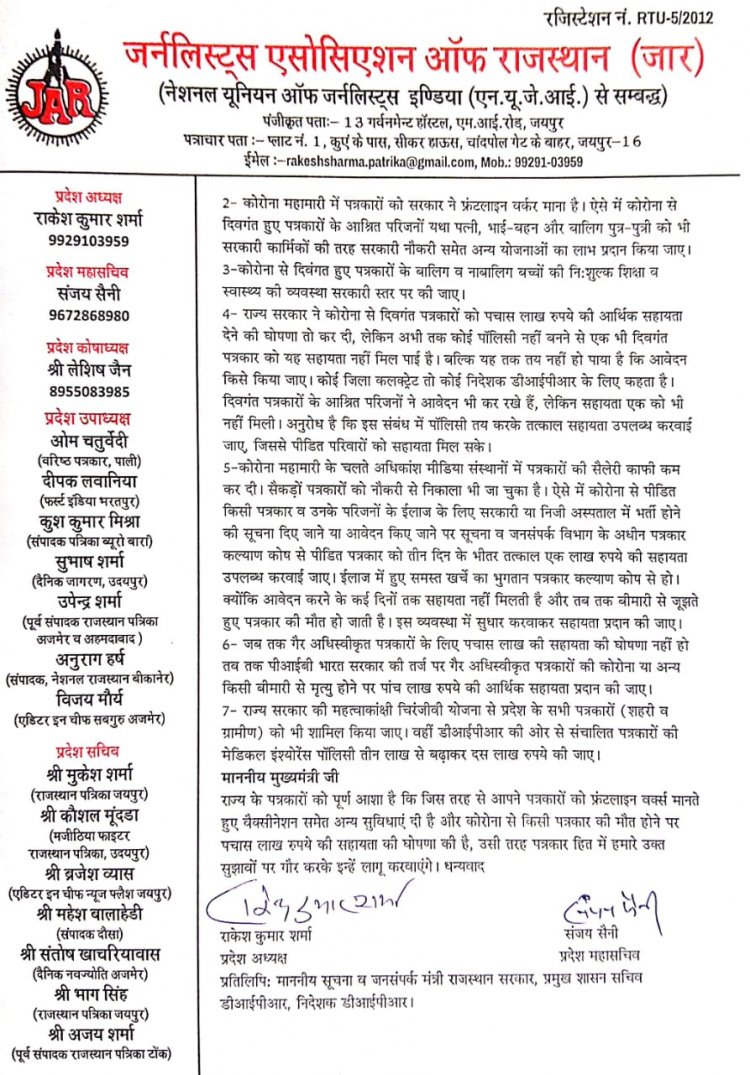 रजिस्टेशन नं. RTU-5/2012
JAR
जर्नलिस्ट्स एसोसिएशन ऑफ राजस्थान (जार)
(नेशनल यूनियन ऑफ जर्नलिस्ट्स इण्डिया (एन.यू.जे.आई.) से सम्बद्ध)
पंजीकृत पता:- 13 गर्वनमेन्ट हॉस्टल, एम.आई.रोड, जयपुर
पत्राचार पता :- प्लाट नं. 1, कुएं के पास, सीकर हाऊस, चांदपोल गेट के बाहर, जयपुर-16
ईमेल :-rakeshsharma.patrika@gmail.com, Mob.: 99291-03959
प्रदेश अध्यक्ष
राकेश कुमार शर्मा
9929103959
प्रदेश महासचिव
संजय सैनी
9672868980
प्रदेश कोषाध्यक्ष
श्री लेशिष जैन
8955083985
प्रदेश उपाध्यक्ष
ओम चतुर्वेदी
(वरिष्ठ पत्रकार, पाली)
दीपक लवानिया
(फर्स्ट इंडिया भरतपुर)
कुश कुमार मिश्रा
(संपादक पत्रिका ब्यूरो बारां)
सुभाष शर्मा
(दैनिक जागरण, उदयपुर)
उपेन्द्र शर्मा
(पूर्व संपादक राजस्थान पत्रिका
अजमेर व अहमदाबाद )
अनुराग हर्ष
(संपादक, नेशनल राजस्थान बीकानेर)
विजय मौर्य
(एडिटर इन चीफ सबगुरु अजमेर)
प्रदेश सचिव
श्री मुकेश शर्मा
(राजस्थान पत्रिका जयपुर)
श्री कौशल मूंदडा
(मजीठिया फाइटर
राजस्थान पत्रिका, उदयपुर)
श्री ब्रजेश व्यास
(एडिटर इन चीफ न्यूज फ्लैश जयपुर)
श्री महेश बालाहेडी
(संपादक दौसा)
श्री संतोष खाचरियावास
(दैनिक नवज्योति अजमेर)
श्री भाग सिंह
(राजस्थान पत्रिका जयपुर)
श्री अजय शर्मा
(पूर्व संपादक राजस्थान पत्रिका टोंक)
2- कोरोना महामारी में पत्रकारों को सरकार ने फ्रंटलाइन वर्कर माना है। ऐसे में कोरोना से
दिवगंत हुए पत्रकारों के आश्रित परिजनों यथा पत्नी, भाई-बहन और बालिग पुत्र-पुत्री को भी
सरकारी कार्मिकों की तरह सरकारी नौकरी समेत अन्य योजनाओं का लाभ प्रदान किया जाए।
3-कोरोना से दिवंगत हुए पत्रकारों के बालिग व नाबालिग बच्चों की नि:शुल्क शिक्षा व
स्वास्थ्य की व्यवस्था सरकारी स्तर पर की जाए।
4- राज्य सरकार ने कोरोना से दिवगंत पत्रकारों को पचास लाख रुपये की आर्थिक सहायता
देने की घोषणा तो कर दी, लेकिन अभी तक कोई पॉलिसी नहीं बनने से एक भी दिवगंत
पत्रकार को यह सहायता नहीं मिल पाई है। बल्कि यह तक तय नहीं हो पाया है कि आवेदन
किसे किया जाए। कोई जिला कलक्ट्रेट तो कोई निदेशक डीआईपीआर के लिए कहता है।
दिवगंत पत्रकारों के आश्रित परिजनों ने आवेदन भी कर रखे हैं, लेकिन सहायता एक को भी
नहीं मिली। अनुरोध है कि इस संबंध में पॉलिसी तय करके तत्काल सहायता उपलब्ध करवाई
जाए, जिससे पीडित परिवारों को सहायता मिल सके।
5-कोरोना महामारी के चलते अधिकांश मीडिया संस्थानों में पत्रकारों की सैलेरी काफी कम
कर दी। सैकड़ों पत्रकारों को नौकरी से निकाला भी जा चुका है। ऐसे में कोरोना से पीडित
किसी पत्रकार व उनके परिजनों के ईलाज के लिए सरकारी या निजी अस्पताल में भर्ती होने
की सूचना दिए जाने या आवेदन किए जाने पर सूचना व जनसंपर्क विभाग के अधीन पत्रकार
कल्याण कोष से पीडित पत्रकार को तीन दिन के भीतर तत्काल एक लाख रुपये की सहायता
उपलब्ध करवाई जाए। ईलाज में हुए समस्त खर्चे का भुगतान पत्रकार कल्याण कोष से हो।
क्योंकि आवेदन करने के कई दिनों तक सहायता नहीं मिलती है और तब तक बीमारी से जूझते
हुए पत्रकार की मौत हो जाती है। इस व्यवस्था में सुधार करवाकर सहायता प्रदान की जाए।
6- जब तक गैर अधिस्वीकृत पत्रकारों के लिए पचास लाख की सहायता की घोषणा नहीं हो
तब तक पीआईबी भारत सरकार की तर्ज पर गैर अधिस्वीकृत पत्रकारों की कोरोना या अन्य
किसी बीमारी से मृत्यु होने पर पांच लाख रुपये की आर्थिक सहायता प्रदान की जाए।
7- राज्य सरकार की महत्वाकांक्षी चिरंजीवी योजना से प्रदेश के सभी पत्रकारों (शहरी व
ग्रामीण) को भी शामिल किया जाए। वहीं डीआईपीआर की ओर से संचालित पत्रकारों की
मेडिकल इंश्योरेंस पॉलिसी तीन लाख से बढ़ाकर दस लाख रुपये की जाए।
माननीय मुख्यमंत्री जी
राज्य के पत्रकारों को पूर्ण आशा है कि जिस तरह से आपने पत्रकारों को फ्रंटलाइन वर्क्स मानते
हुए वैक्सीनेशन समेत अन्य सुविधाएं दी है और कोरोना से किसी पत्रकार की मौत होने पर
पचास लाख रुपये की सहायता की घोषणा की है, उसी तरह पत्रकार हित में हमारे उक्त
सुझावों पर गौर करके इन्हें लागू करवाएंगे। धन्यवाद
राकेश कुमार शर्मा
प्रदेश अध्यक्ष
संजय सैनी
संजय सैनी
प्रदेश महासचिव
प्रतिलिपि: माननीय सूचना व जनसंपर्क मंत्री राजस्थान सरकार, प्रमुख शासन सचिव
डीआईपीआर, निदेशक डीआईपीआर।